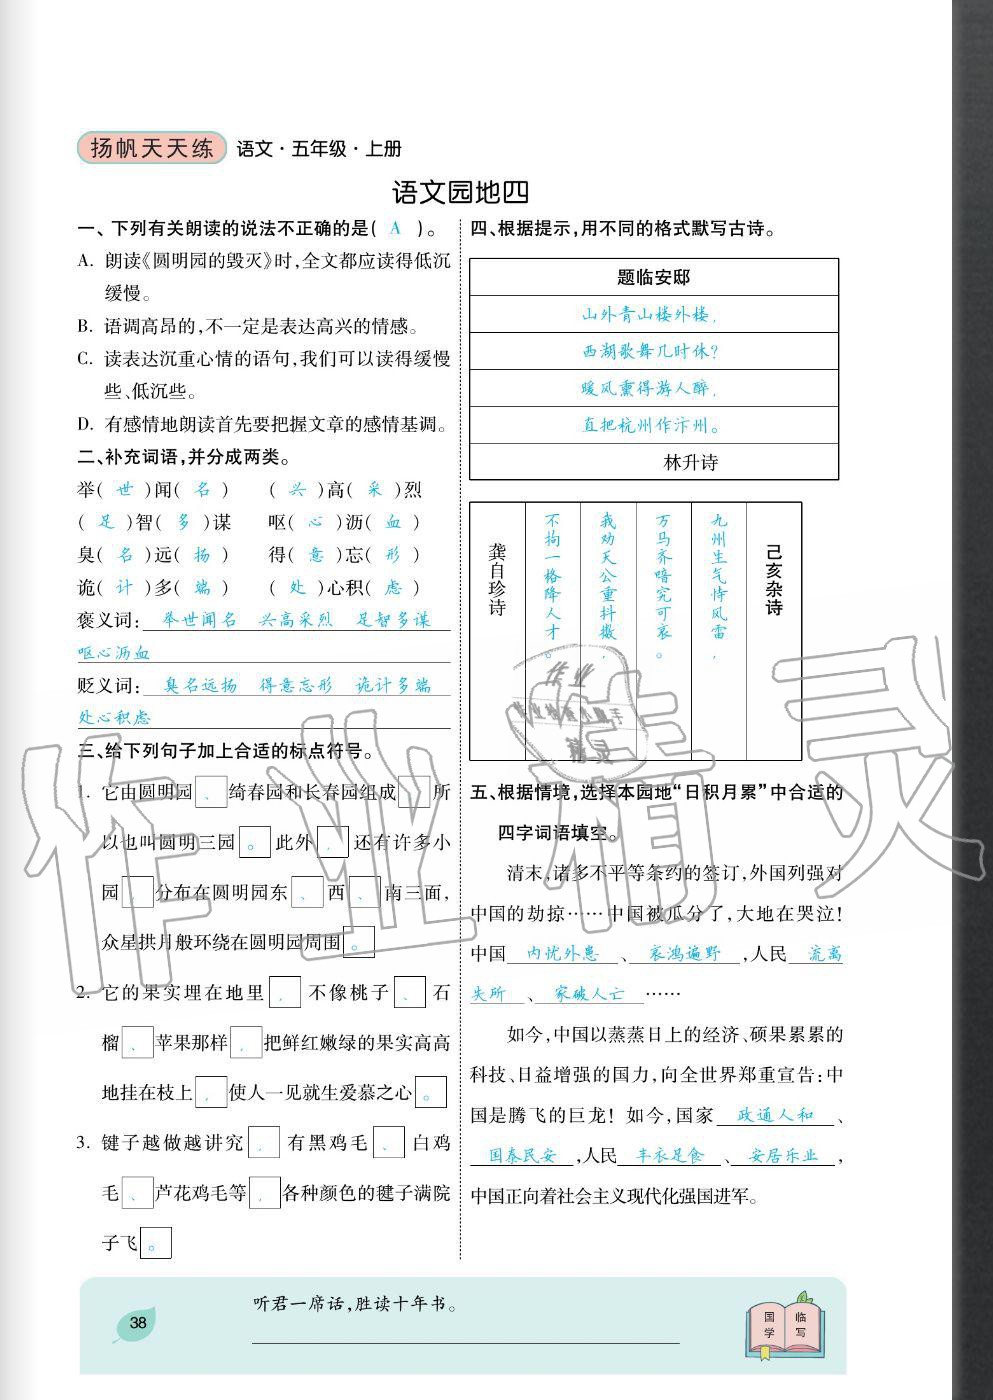 扬帆天天练 语文·五年级·上册
语文园地四
一、下列有关朗读的说法不正确的是( A )。
A. 朗读《圆明园的毁灭》时,全文都应读得低沉
缓慢。
B. 语调高昂的,不一定是表达高兴的情感。
C. 读表达沉重心情的语句,我们可以读得缓慢
些、低沉些。
D. 有感情地朗读首先要把握文章的感情基调。
二、补充词语,并分成两类。
举( 世 )闻( 名 ) ( 兴 )高( 采 )烈
( 足 )智( 多 )谋 呕( 心 )沥( 血 )
臭( 名 )远( 扬 ) 得( 意 )忘( 形 )
诡( 计 )多( 端 ) ( 处 )心积( 虑 )
褒义词: 举世闻名 兴高采烈 足智多谋
呕心沥血
贬义词: 臭名远扬 得意忘形 诡计多端
处心积虑
三、给下列句子加上合适的标点符号。
1. 它由圆明园、绮春园和长春园组成,所
以也叫圆明三园。此外,还有许多小
园,分布在圆明园东、西、南三面,
众星拱月般环绕在圆明园周围。
2. 它的果实埋在地里,不像桃子、石
榴、苹果那样,把鲜红嫩绿的果实高高
地挂在枝上,使人一见就生爱慕之心。
3. 键子越做越讲究,有黑鸡毛、白鸡
毛、芦花鸡毛等,各种颜色的毽子满院
子飞。
四、根据提示,用不同的格式默写古诗。
题临安邸
山外青山楼外楼,
西湖歌舞几时休?
暖风熏得游人醉,
直把杭州作汴州。
林升诗
己亥杂诗
九州生气恃风雷,
万马齐喑究可哀。
我劝天公重抖擞,
不拘一格降人才。
龚自珍诗
五、根据情境,选择本园地“日积月累”中合适的
四字词语填空。
清末,诸多不平等条约的签订,外国列强对
中国的劫掠……中国被瓜分了,大地在哭泣!
中国 内忧外患 、 哀鸿遍野 ,人民 流离
失所 、 家破人亡 ……
如今,中国以蒸蒸日上的经济、硕果累累的
科技、日益增强的国力,向全世界郑重宣告:中
国是腾飞的巨龙!如今,国家 政通人和 、
国泰民安 ,人民 丰衣足食 、 安居乐业 ,
中国正向着社会主义现代化强国进军。
作业精灵
作业
作业精灵小助手
精灵
38
听君一席话,胜读十年书。
国学
临写